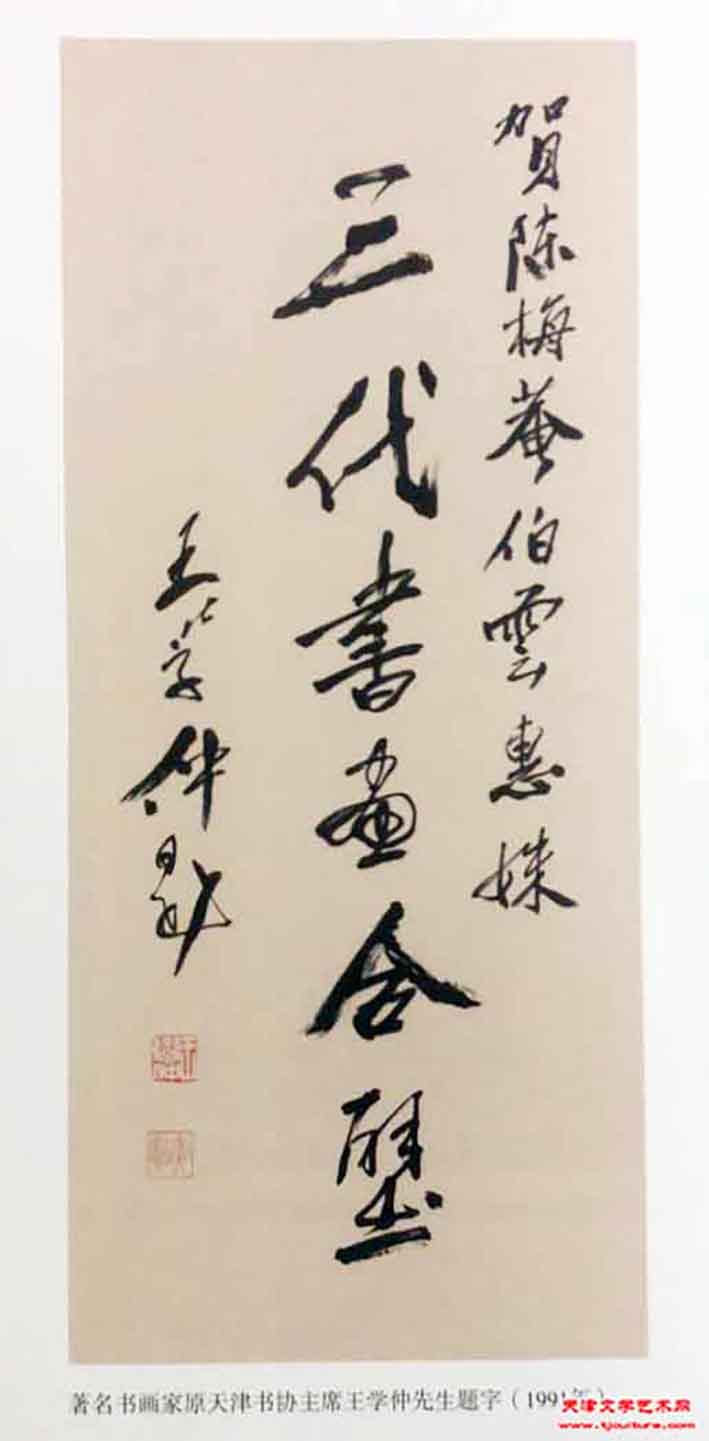 賀陈梅菴伯雲惠姝
三代書画合璧
王学仲题
著名书画家原天津书协主席王学仲先生题字（1991年）
天津文学艺术网
www.tjculture.com